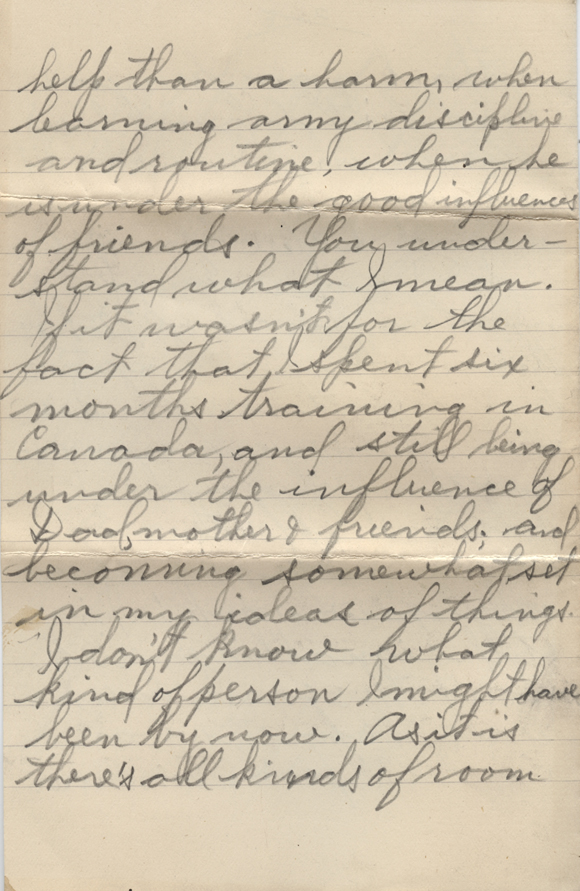 help than a harm, when
learning army discipline
and routine, when he
is under the good influences
of friends. You under-
stand what I mean.
If it wasn't for the
fact that I spent six
months training in
Canada, and still being
under the influence of
Dad, mother & friends, and
becoming somewhat set
in my ideas of things.
I don't know what
kind of person I might have
been by now. As it is
there's all kinds of room